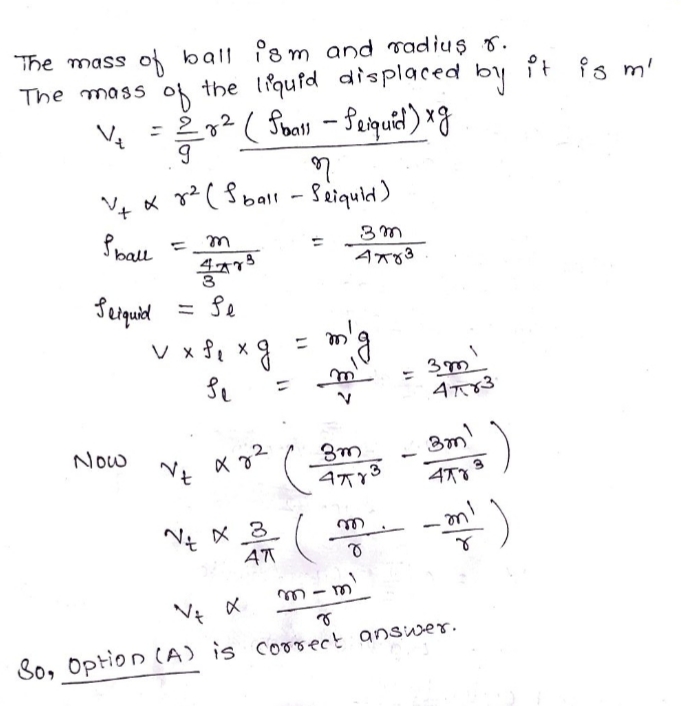 The mass of ball is m and radius r.
The mass of the liquid displaced by it is m'
V_t = 2/9 r² (ρ_ball - ρ_liquid) × g / η
V_t ∝ r² (ρ_ball - ρ_liquid)
ρ_ball = m / (4/3 πr³) = 3m / 4πr³
ρ_liquid = ρ_l
V × ρ_l × g = m'g
ρ_l = m' / V = 3m' / 4πr³
Now V_t ∝ r² (3m / 4πr³ - 3m' / 4πr³)
V_t ∝ 3 / 4π (m / r - m' / r)
V_t ∝ m - m' / r
So, Option (A) is correct answer.